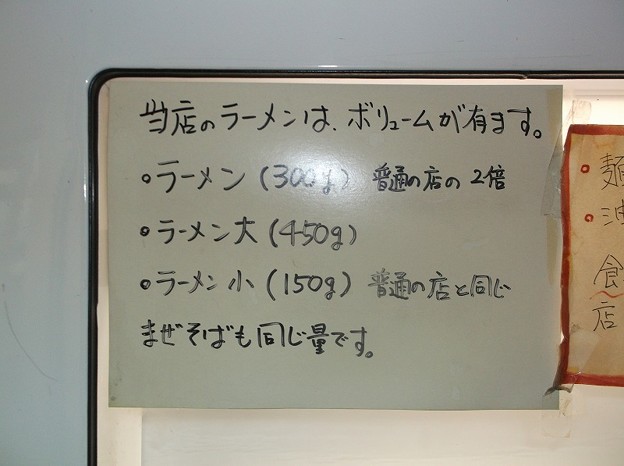 当店のラーメンは、ボリュームが有ます。
○ラーメン(300g) 普通の店の2倍
○ラーメン大(450g)
○ラーメン小(150g) 普通の店と同じ
まぜそばも同じ量です。
麺
食
店